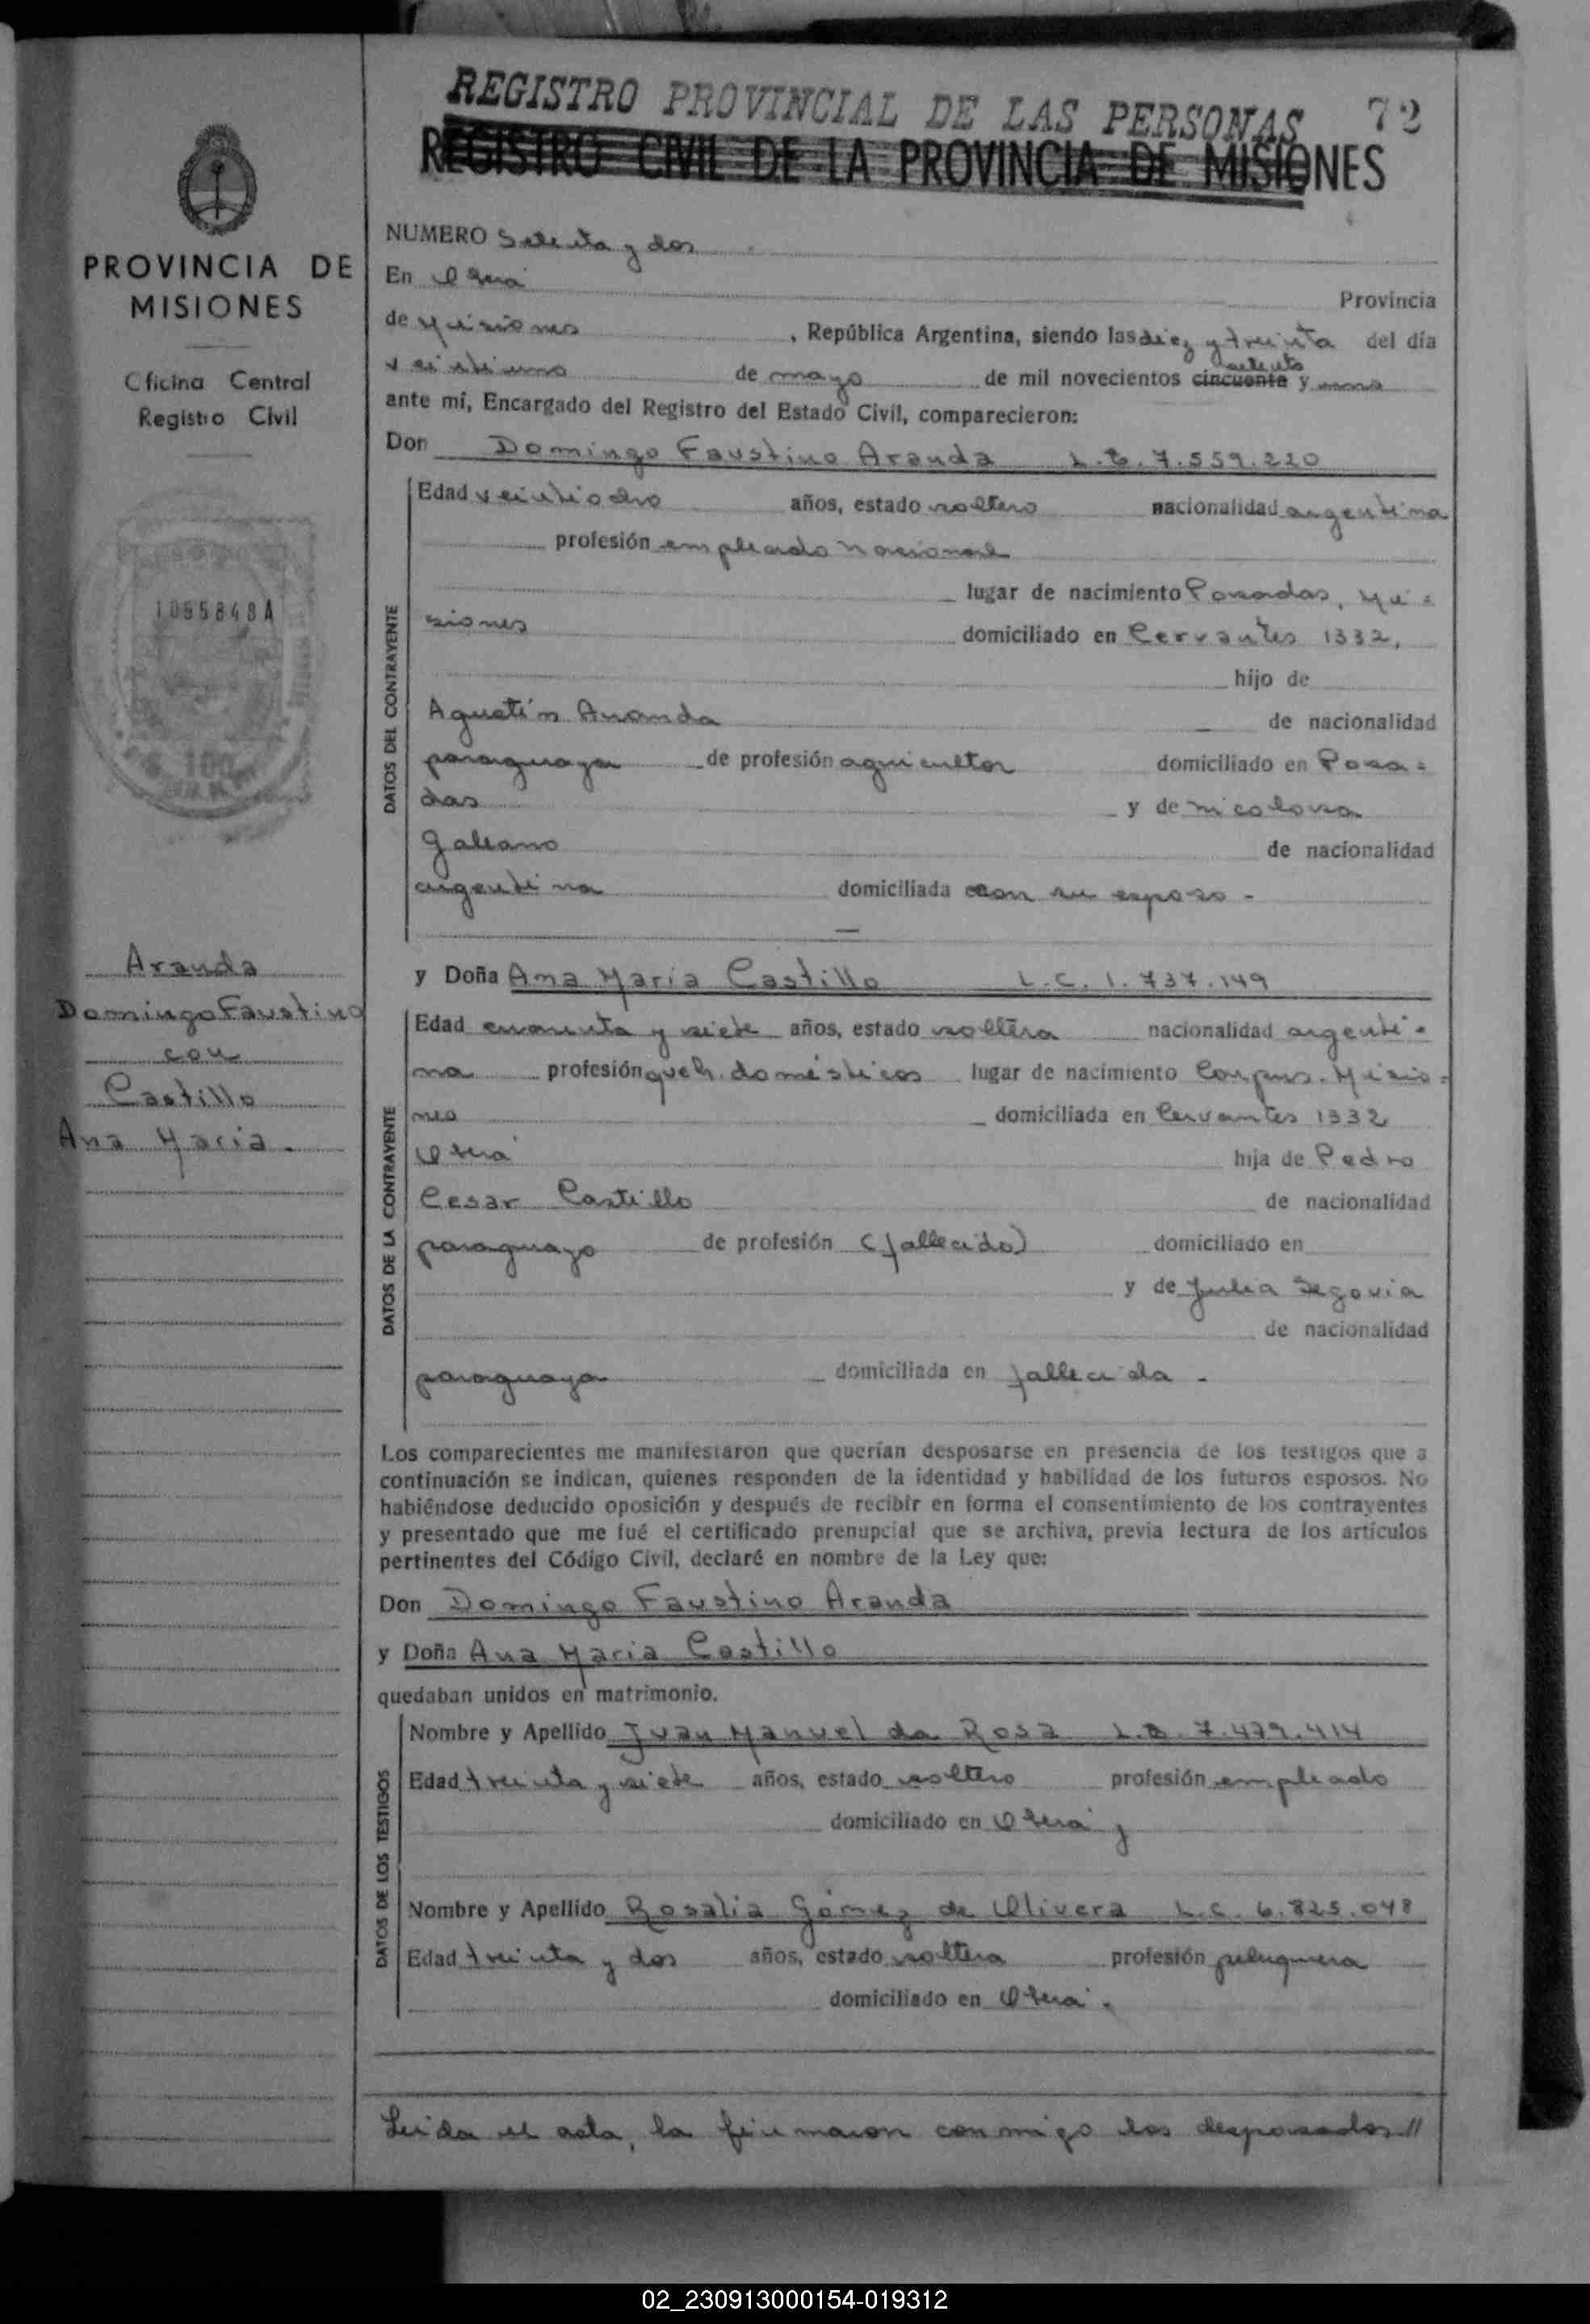 REGISTRO PROVINCIAL DE LAS PERSONAS 72
REGISTRO CIVIL DE LA PROVINCIA DE MISIONES
PROVINCIA DE
MISIONES
Oficina Central
Registro Civil
1095848A
100
Aranda
Domingo Faustino
con
Castillo
Ana Maria.
NUMERO Setenta y dos
En Oberá Provincia
de Misiones, República Argentina, siendo las diez y treinta del día
setenta
veintiuno de mayo de mil novecientos cincuenta y uno
ante mí, Encargado del Registro del Estado Civil, comparecieron:
Don Domingo Faustino Aranda L.E. 7.559.220
DATOS DEL CONTRAYENTE
Edad veintiocho años, estado soltero nacionalidad argentina
profesión empleado nacional
lugar de nacimiento Posadas, Mi=
siones domiciliado en Cervantes 1332,
hijo de
Agustín Aranda de nacionalidad
paraguaya de profesión agricultor domiciliado en Posa=
das y de Nicolasa
Galeano de nacionalidad
argentina domiciliada con su esposo -
y Doña Ana Maria Castillo L.C. 1.737.149
DATOS DE LA CONTRAYENTE
Edad cuarenta y siete años, estado soltera nacionalidad argenti=
na profesión queh. domésticos lugar de nacimiento Corpus. Misio=
nes domiciliada en Cervantes 1332
Oberá hija de Pedro
Cesar Castillo de nacionalidad
paraguayo de profesión (fallecido) domiciliado en
y de Julia Segovia
de nacionalidad
paraguaya domiciliada en fallecida -
Los comparecientes me manifestaron que querían desposarse en presencia de los testigos que a
continuación se indican, quienes responden de la identidad y habilidad de los futuros esposos. No
habiéndose deducido oposición y después de recibir en forma el consentimiento de los contrayentes
y presentado que me fué el certificado prenupcial que se archiva, previa lectura de los artículos
pertinentes del Código Civil, declaré en nombre de la Ley que:
Don Domingo Faustino Aranda
y Doña Ana Maria Castillo
quedaban unidos en matrimonio.
DATOS DE LOS TESTIGOS
Nombre y Apellido Juan Manuel da Rosa L.E. 7.479.414
Edad treinta y siete años, estado soltero profesión empleado
domiciliado en Oberá y
Nombre y Apellido Rosalia Gómez de Olivera L.C. 6.825.048
Edad treinta y dos años, estado soltera profesión peluquera
domiciliado en Oberá.
Leida el acta, la firmaron conmigo los desposados//
02_230913000154-019312